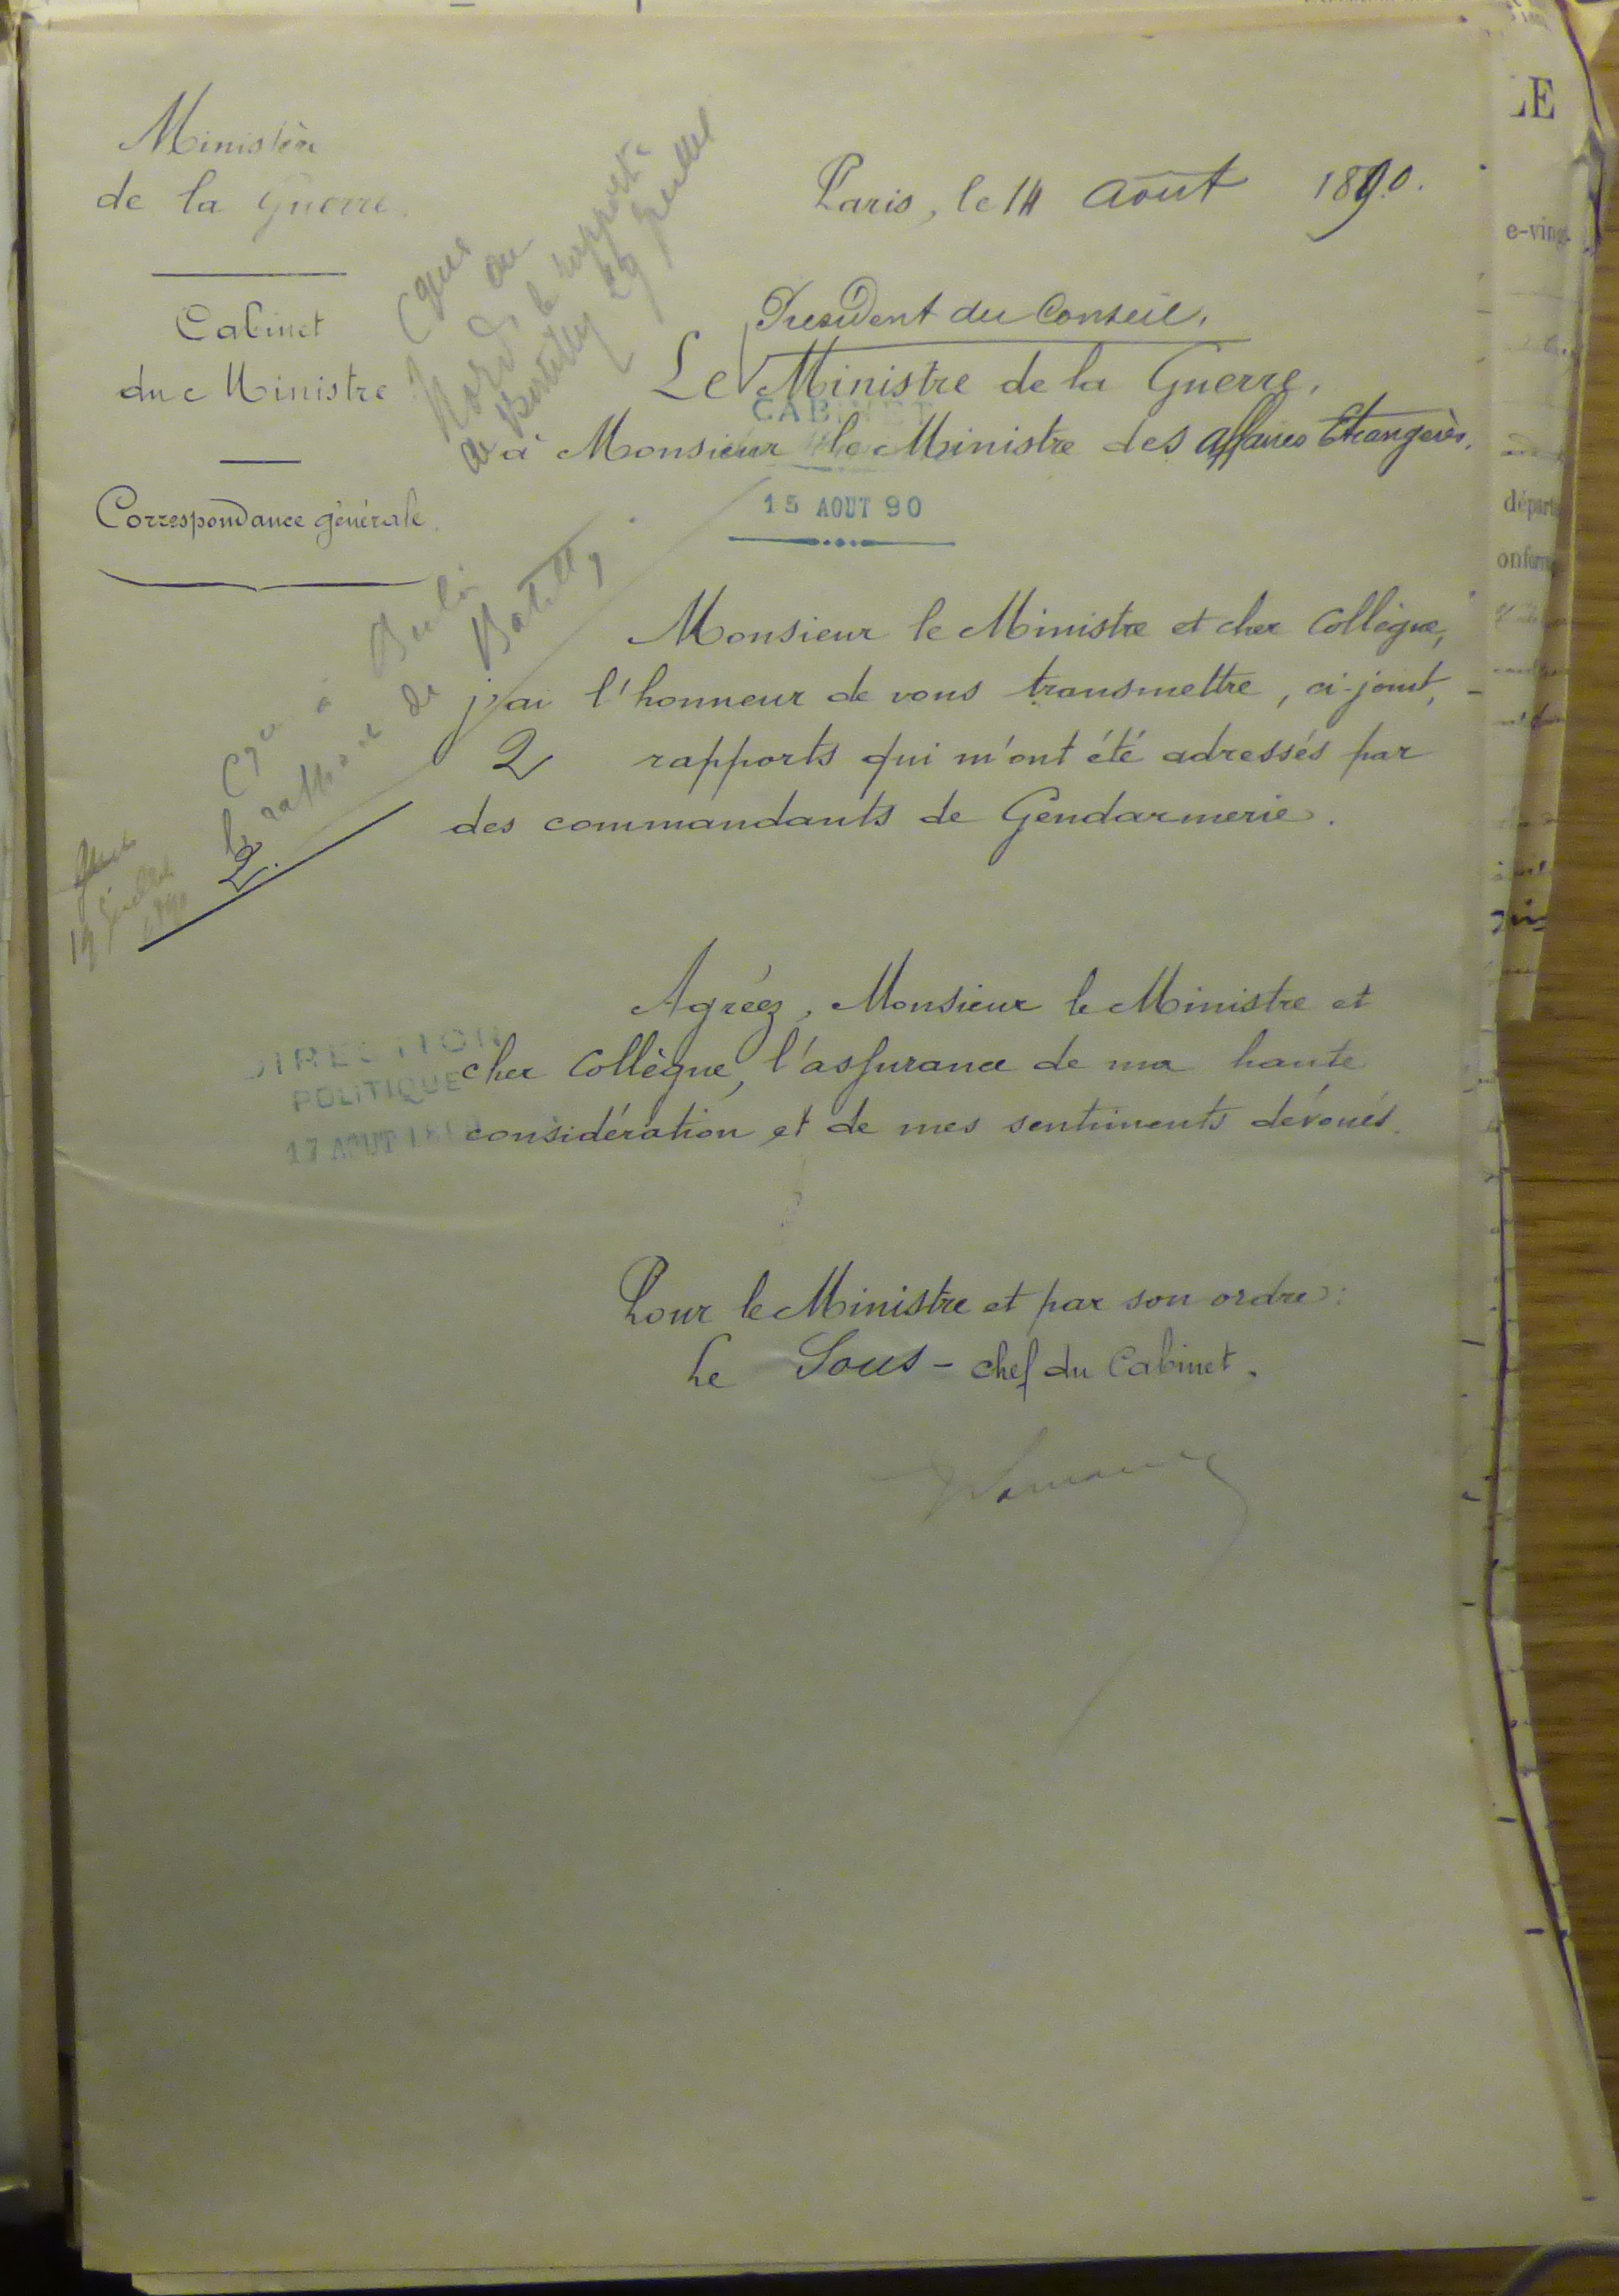 Ministère
de la Guerre.
Cabinet
du Ministre
Correspondance générale.
Paris, le 14 Août 1890.
Président du Conseil,
Le Ministre de la Guerre,
à Monsieur le Ministre des Affaires Etrangères.
CABINET
15 AOUT 90
le rapport
de
29 Juillet
à Berlin
le rapport de Batilly
19 Juillet
1890
2.
Monsieur le Ministre et cher Collègue,
j'ai l'honneur de vous transmettre, ci-joint,
2 rapports qui m'ont été adressés par
des commandants de Gendarmerie.
Agréez, Monsieur le Ministre et
cher Collègue, l'assurance de ma haute
considération et de mes sentiments dévoués.
DIRECTION
POLITIQUE
17 AOUT
Pour le Ministre et par son ordre:
Le Sous-chef du Cabinet.
LE
e-ving
départ